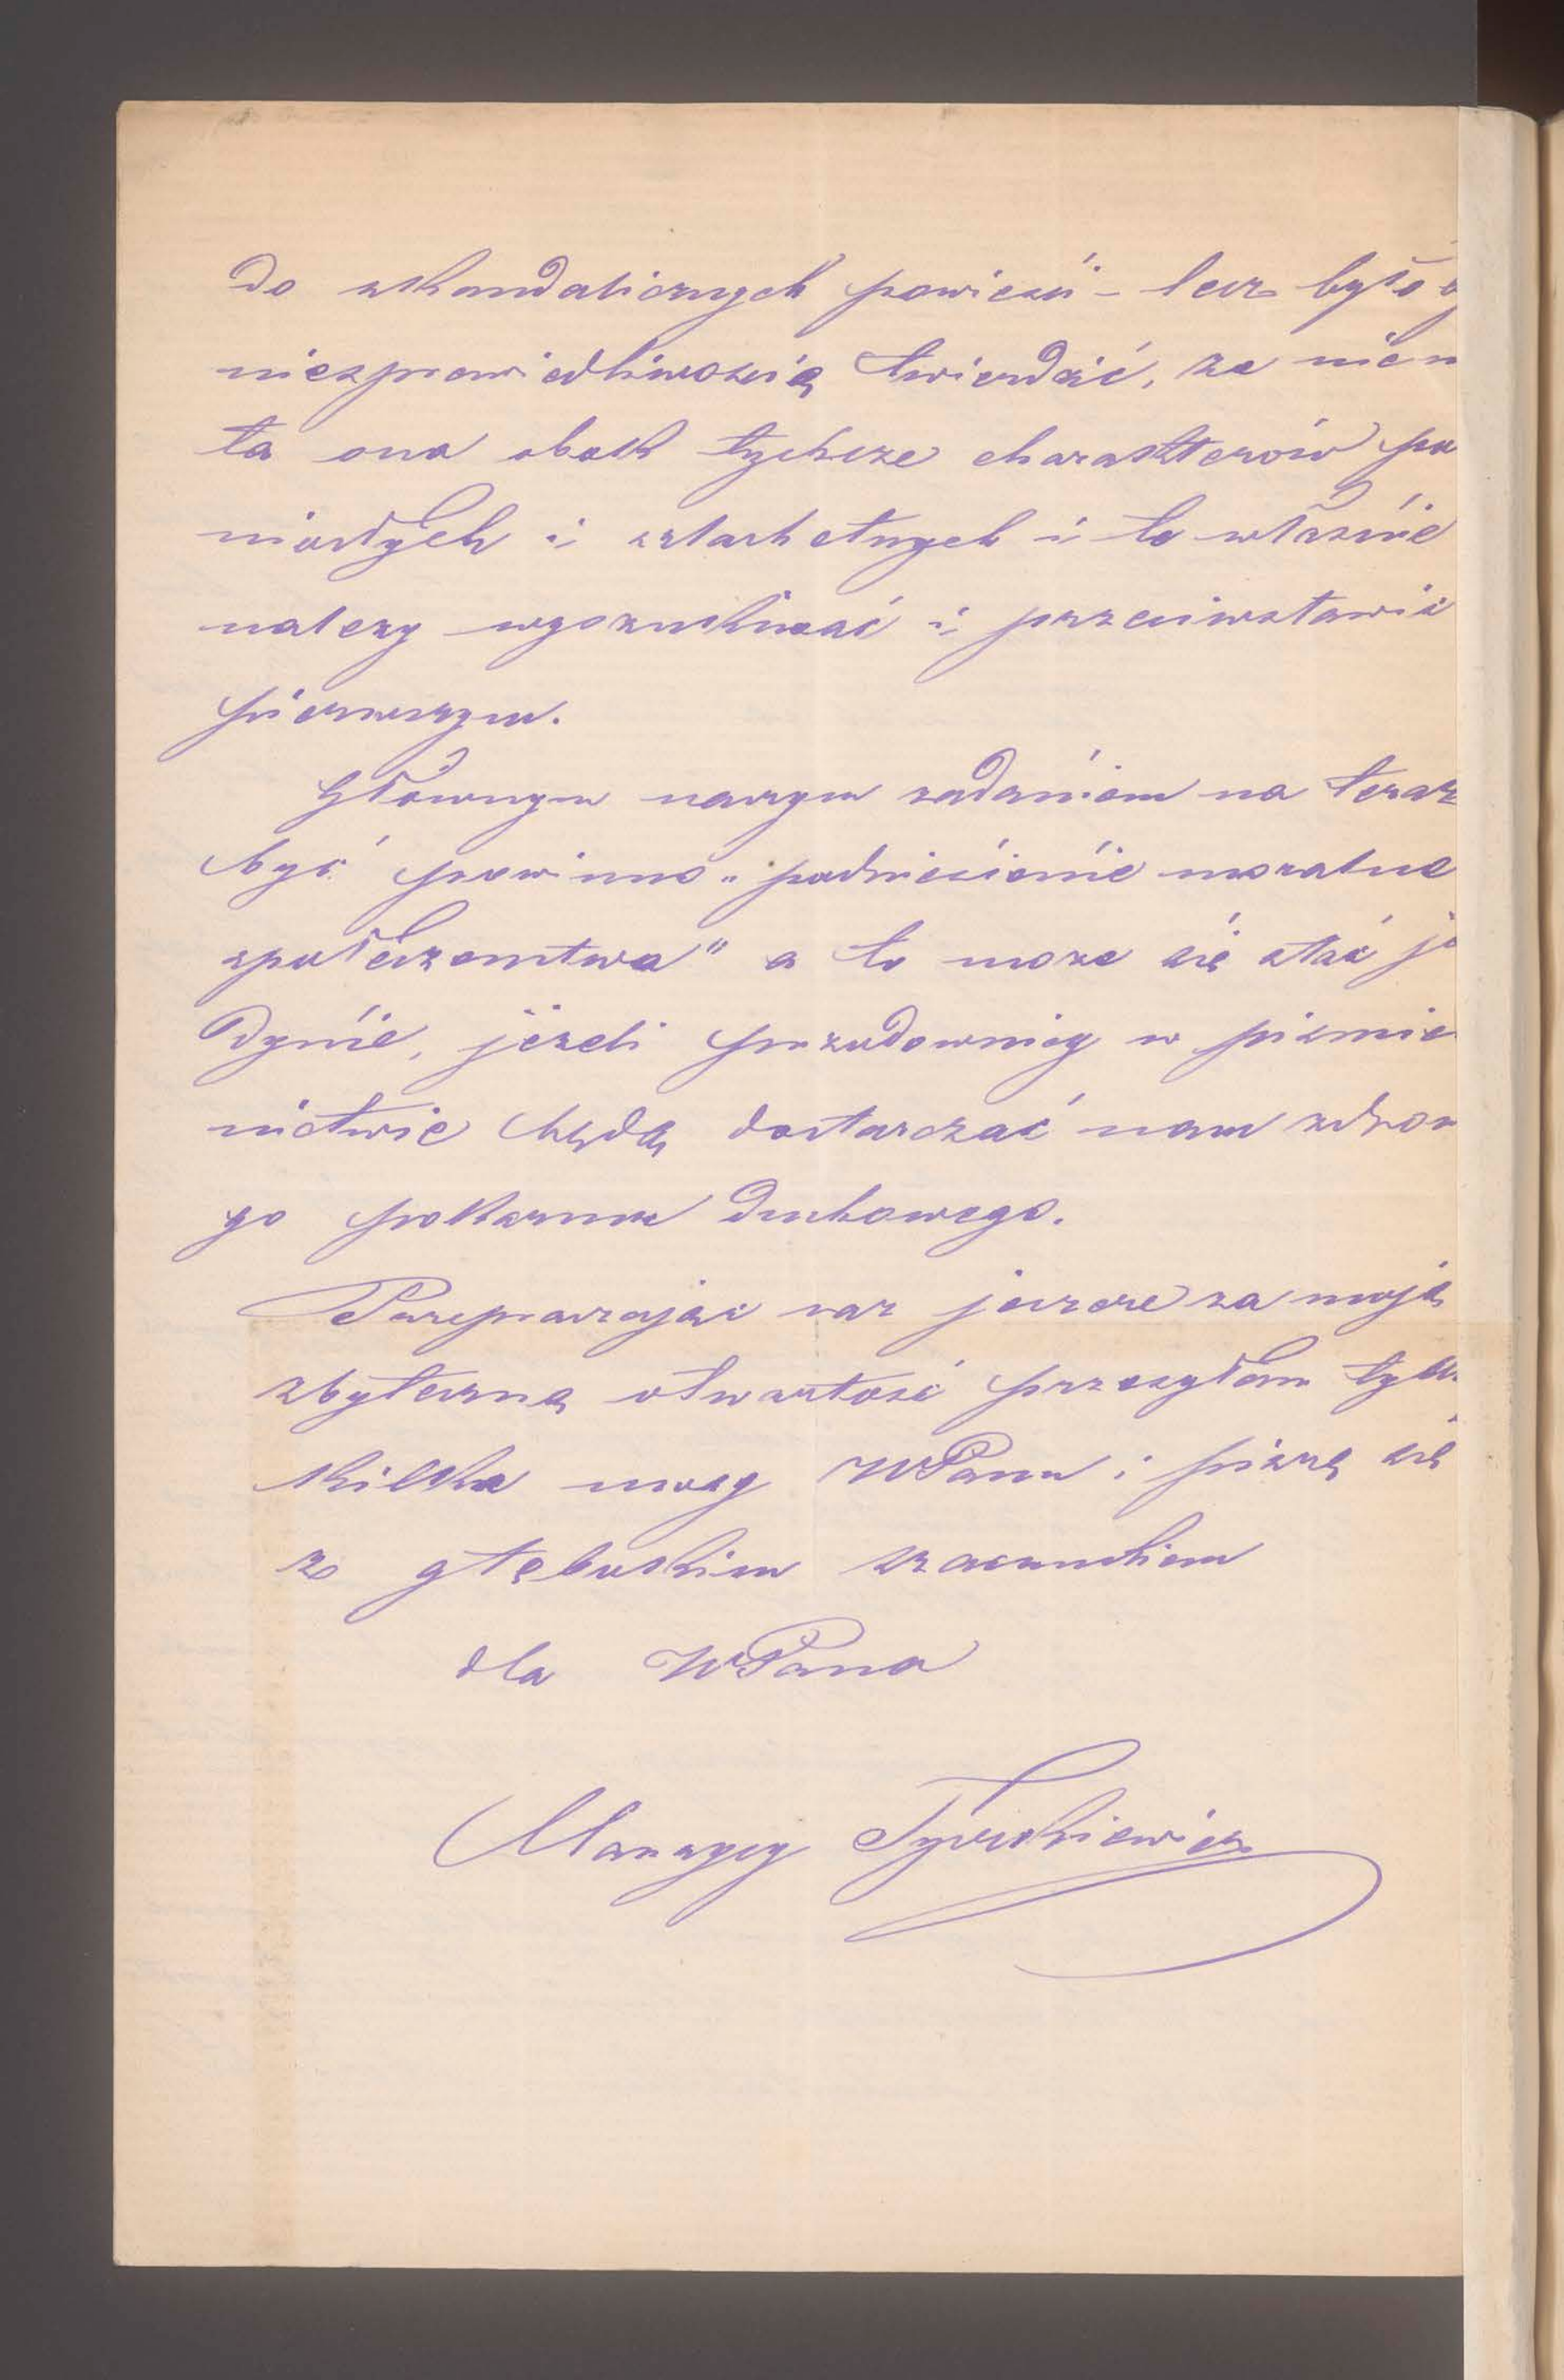 do skandalicznych powieści – lecz było
niesprawiedliwością twierdzić, że nie
ta ona obok tychcze charakterów po
niosłych i szlachetnych i to właśnie
należy wyszukiwać i przeciwstawić
pierwszym.
Głównym naszym zadaniem na teraz
być powinno „podniesienie moralne
społeczeństwa" a to może się stać je
dynie, jeżeli przodownicy w piśmie
nictwie będą dostarczać nam zdrow
go pokarmu duchowego.
Przepraszając raz jeszcze za moją
zbyteczną otwartość przesyłam tych
kilka uwag WPanu i piszę się
z głębokim szacunkiem
dla WPana
Maurycy Tyszkiewicz